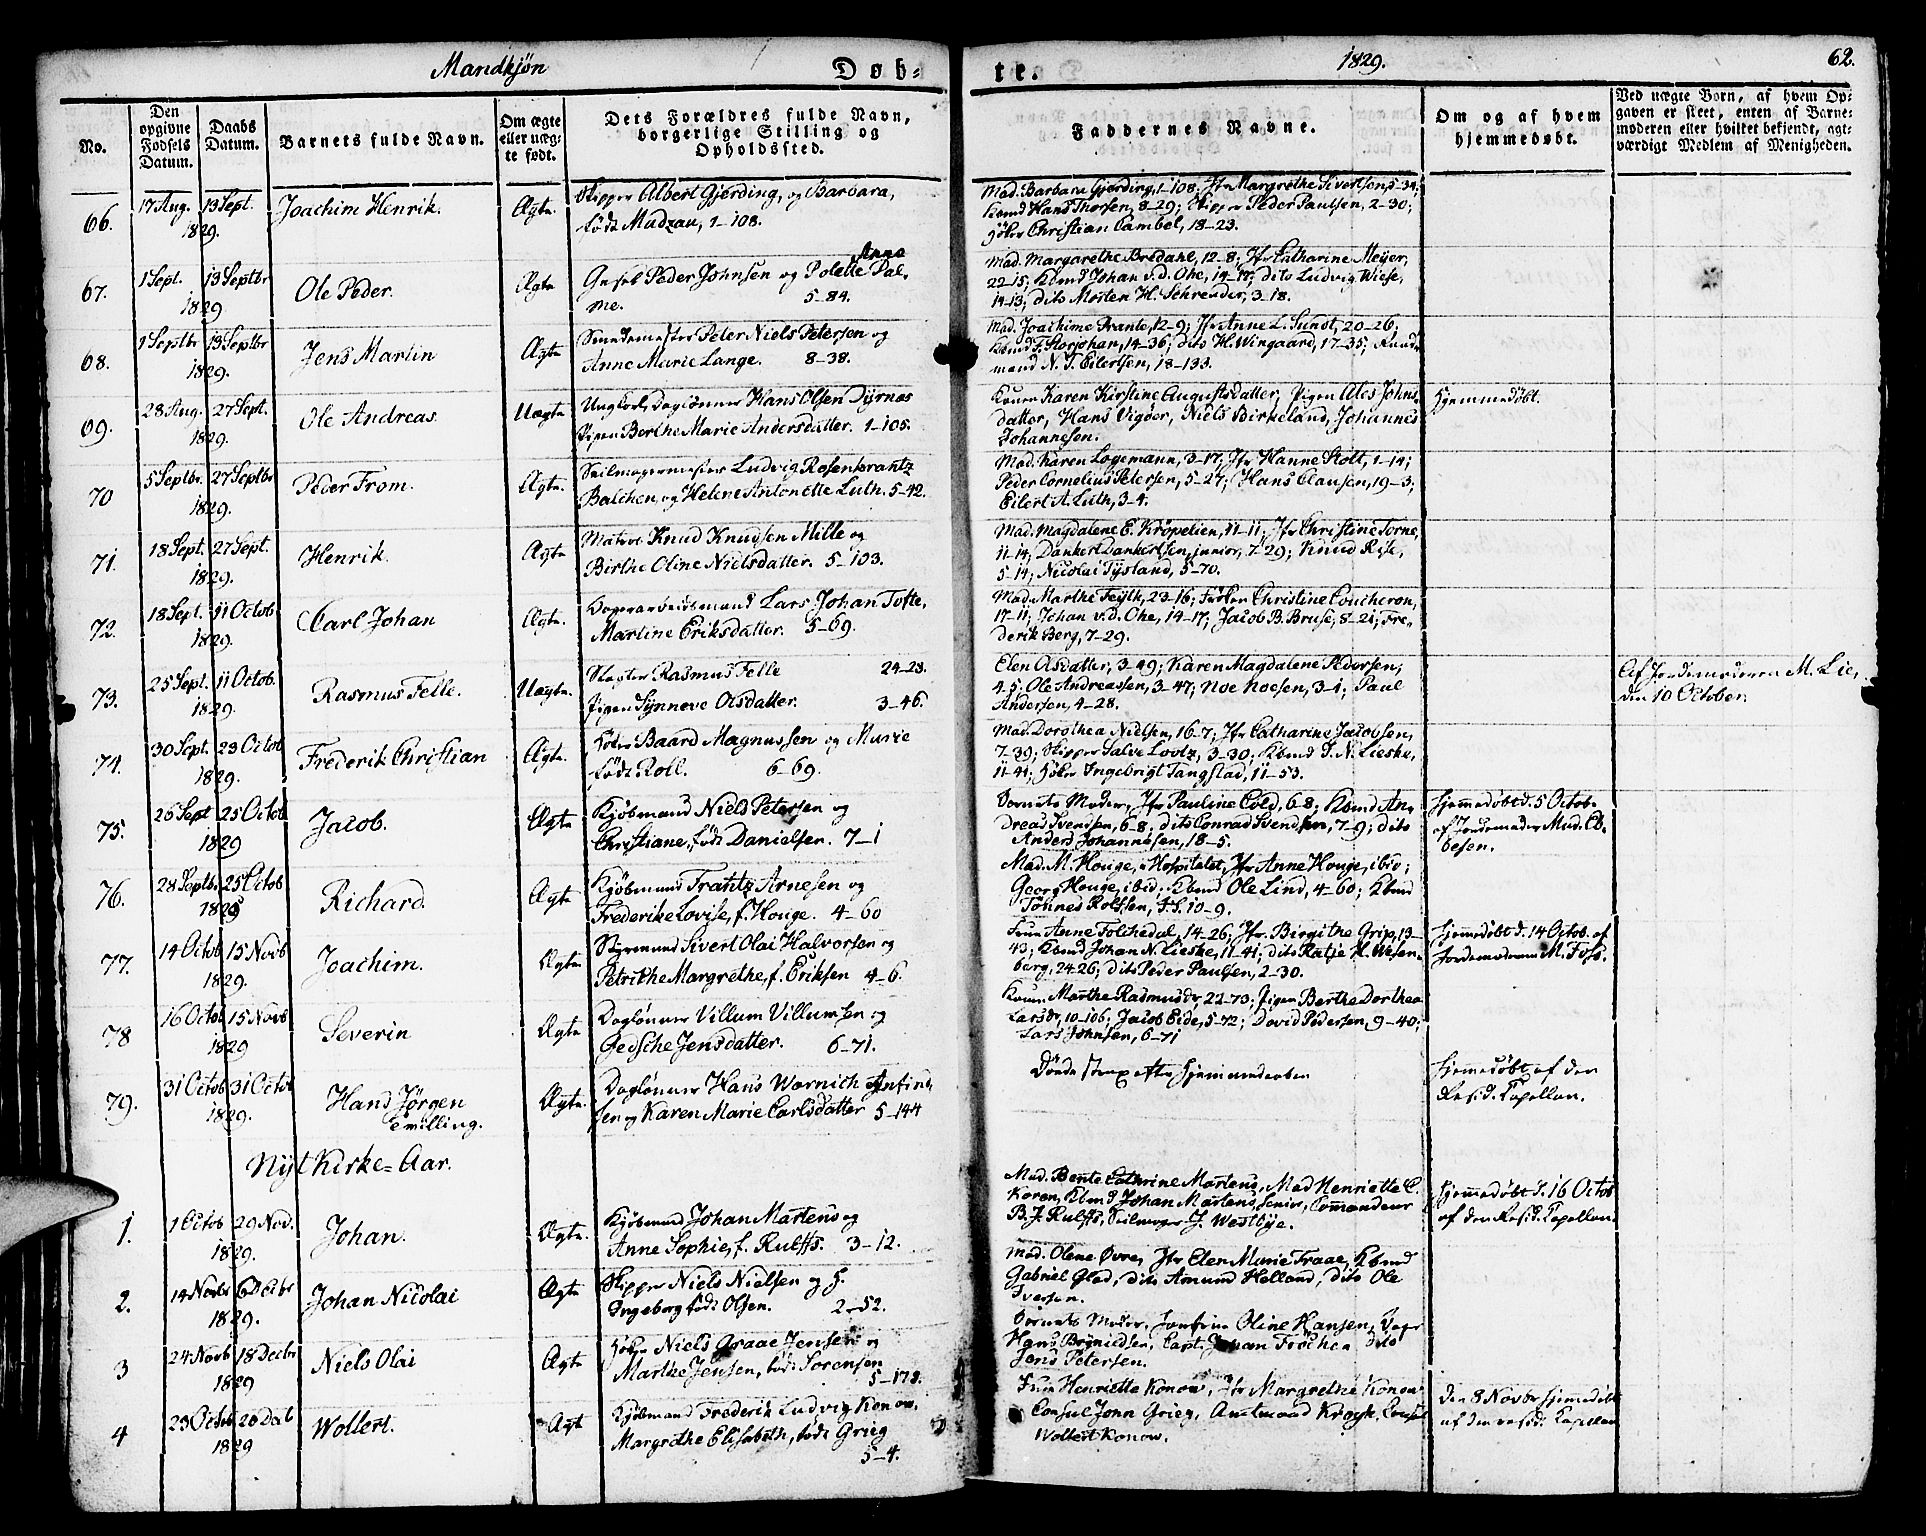 Mandkjøn
Døb-
te.
1829.
62.
No.
Den
opgivne
Fødsels
Datum.
Daabs
Datum.
Barnets fulde Navn.
Om ægte
eller uæg-
te født.
Dets Forældres fulde Navn,
borgerlige Stilling og
Opholdssted.
Faddernes Navne.
Om og af hvem
hjemmedøbt.
Ved uægte Børn, af hvem Op-
gaven er skeet, enten af Barne-
moderen eller hvilket bekjendt, agt-
værdigt Medlem af Menigheden.
66.
17 Aug. 13 Sept.
1829.
Joachim Henrik.
Ægte.
Skipper Albert Gjerding, og Barbara,
født Madzau, 1-108.
Mad. Barbara Gjerding, 1-108; Jfr Margrethe Sivertsen, 5-34;
Kbmd Hans Thorsen, 8-29; Skipper Peder Paulsen, 2-30;
Høker Christian Cambel, 18-23.
67.
1 Sept. 13 Septbr
1829
Ole Peder.
Ægte
Gesel Peder Johnsen og Polette Anne Pal-
me. 5-84.
Mad. Margarethe Bredahl, 12-8; Jfr Catharine Meyer,
22-15; Kbmd Johan v.d. Ohe, 14-17; dito Ludvig Wiese,
14-13; dito Morten H. Schreuder, 3-18.
68.
1 Septbr 13 Septbr
1829.
Jens Martin
Ægte
Smedemester Peter Niels Petersen og
Anne Marie Lange. 8-38.
Mad. Joachime Prante, 12-9; Jfr Anne L. Sundt, 20-26;
Kbmd F. Storjohan, 14-36; dito H. Wingaard, 17-35;
mand N. T. Eilertsen, 18-133.
69.
28 Aug. 27 Sept.
1829.
Ole Andreas.
Uægte
Ungkarl, Daglønner Hans Olsen Dyrnæs
Pigen Berthe Marie Andersdatter. 1-105.
Kone Karen Kirstine Augustsdatter, Pigen Ales Johns-
datter, Hans Vigøer, Niels Birkeland, Johannes
Johannesen.
Hjemmedøbt.
70
5 Septbr. 27 Septbr
1829.
Peder From.
Ægte.
Seilmagermester Ludvig Rosenkrantz
Balchen og Helene Antonette Luth. 5-42.
Mad. Karen Logemann, 3-17; Jfr Hanne Stolt, 1-14;
Peder Cornelius Petersen, 5-27; Hans Clausen, 19-3;
Eilert A. Luth, 3-4.
71.
18 Sept. 27 Sept.
1829.
Henrik.
Ægte
Matros Knud Knudsen Mille og
Birthe Oline Nielsdatter. 5-103.
Mad. Magdalene E. Krøpelien, 11-11; Jfr Christine Torne,
11-14; Dankert Dankertsen, junior, 7-29; Knud Rise,
5-14; Nicolai Tysland, 5-70.
72.
18 Sept. 11 Octob
1829.
Carl Johan
Ægte.
Lars Johan Tofte,
Martine Eriksdatter. 5-69.
Mad. Marthe Feylk, 23-16; Frøken Christine Coucheron,
17-11; Johan v.d. Ohe, 14-17; Jacob B. Bruse, 8-21; Fre-
derik Berg, 7-29.
73.
25 Sept. 11 Octob.
1829.
Rasmus Felle.
Uægte.
Slagter Rasmus Felle 24-23.
Pigen Synneve Olsdatter. 3-46.
Elen Olsdatter, 3-49; Karen Magdalene Pedersen,
4-5; Ole Andreassen, 3-47; Noe Noesen, 3-1; Paul
Andersen, 4-28.
Af Jordemoderen M. Lie,
den 10 October.
74.
30 Sept. 23 Octob
1829.
Frederik Christian
Ægte.
Høker Baard Magnussen og Marie
født Roll. 6-69.
Mad. Dorothea Nielsen, 16-7; Jfr Catharine Jacobsen,
7-39; Skipper Salve Lootz, 3-30; Kbmd J. N. Lieske,
11-41; Høker Ingebrigt Tangstad, 11-53.
75.
26 Sept 25 Octob
1829
Jacob.
Ægte
Kjøbmand Niels Petersen og
Christiane, født Danielsen. 7-1
Barnets Moder, Jfr Pauline Cold, 6-8; Kbmd An-
dreas Svendsen, 6-8; dito Conrad Svendsen, 7-9; dito
Anders Johannesen, 18-5.
Hjemmedøbt d. 5 Octob.
af Jordemoder Mad. Eb-
besen.
76.
28 Septb. 25 Octob
1829
Richard
Ægte
Kjøbmand Frantz Arnesen og
Frederike Lovise, f. Houge. 4-60
Mad. M. Houge, i Hospitalet, Jfr Anne Houge, ibid;
Georg Houge, ibid; Kbmd Ole Lind, 4-60; Kbmd
Tønnes Rolfsen, 10-9.
77.
14 Octob 15 Novb
1829.
Joachim.
Ægte
Styrmand Sivert Olai Halvorsen og
Petrikke Margrethe, f. Eriksen 4-6.
Frue Anne Folchedal, 14-26; Jfr Birgithe Grip, 13-
43; Kbmd Johan N. Lieske, 11-41; dito Ratje H. Wesen-
berg, 24-26; dito Peder Paulsen, 2-30.
Hjemmedøbt d. 14 Octob. af
Jordemoderen M. Foss.
78
16 Octob 15 Novb
1829
Severin
Ægte
Daglønner Villum Villumsen og
Gedsche Jensdatter. 6-71.
Kone Marthe Rasmusdr, 22-73; Pigen Berthe Dorthea
Larsdr, 10-106; Jacob Eide, 5-72; David Pedersen, 9-40;
Lars Johnsen, 6-71
79.
31 Octob 31 Octob
1829.
Hans Jørgen
tvilling.
Ægte.
Daglønner Hans Wernich Anfind-
sen og Karen Marie Carlsdatter 5-144
Døde strax efter Hjemmedaaben
Hjemmedøbt af den
Resid. Capellan.
Nyt Kirke-Aar.
1.
1 Octob 29 Nov.
1829.
Johan.
Ægte.
Kjøbmand Johan Martens og
Anne Sophie, f. Rulffs. 3-12.
Mad. Bente Cathrine Martens, Mad Henriette C.
Koren, Kbmd Johan Martens, Senior, Commandeur
B. J. Rulffs, Seilmager J. Westbye.
Hjemmedøbt d. 16 Octob
af den Resid. Capellan.
2.
14 Novbr 6 Decbr
1829.
Johan Nicolai
Ægte
Skipper Niels Nielsen og H.
Ingeborg født Olsen. 2-52.
Mad. Olene Øvre, Jfr Elen Marie Fraae, Kbmd
Gabriel Glad, dito Amund Helland, dito Ole
Iversen.
3
24 Novb 18 Decbr
1829
Niels Olai
Ægte
Høker Niels Graae Jensen og
Marthe Jensen, født Sørensen
5-178.
Barnets Moder, Jomfrue Oline Hansen,
Hans Brynildsen, Capt. Johan Frøchen dito
Jens Petersen.
4
23 Octob 20 Decb
1829
Wollert.
Ægt
Kjøbmand Frederik Ludvig Konow,
Margrethe Elisabeth, født Grieg
5-4.
Frue Henriette Konow, Jfr Margrethe Konow
Consul John Grieg, Amtmand Krogh, Consul
Wollert Konow.
Den 8 Novbr hjemmedøbt
af den resid. Capellan